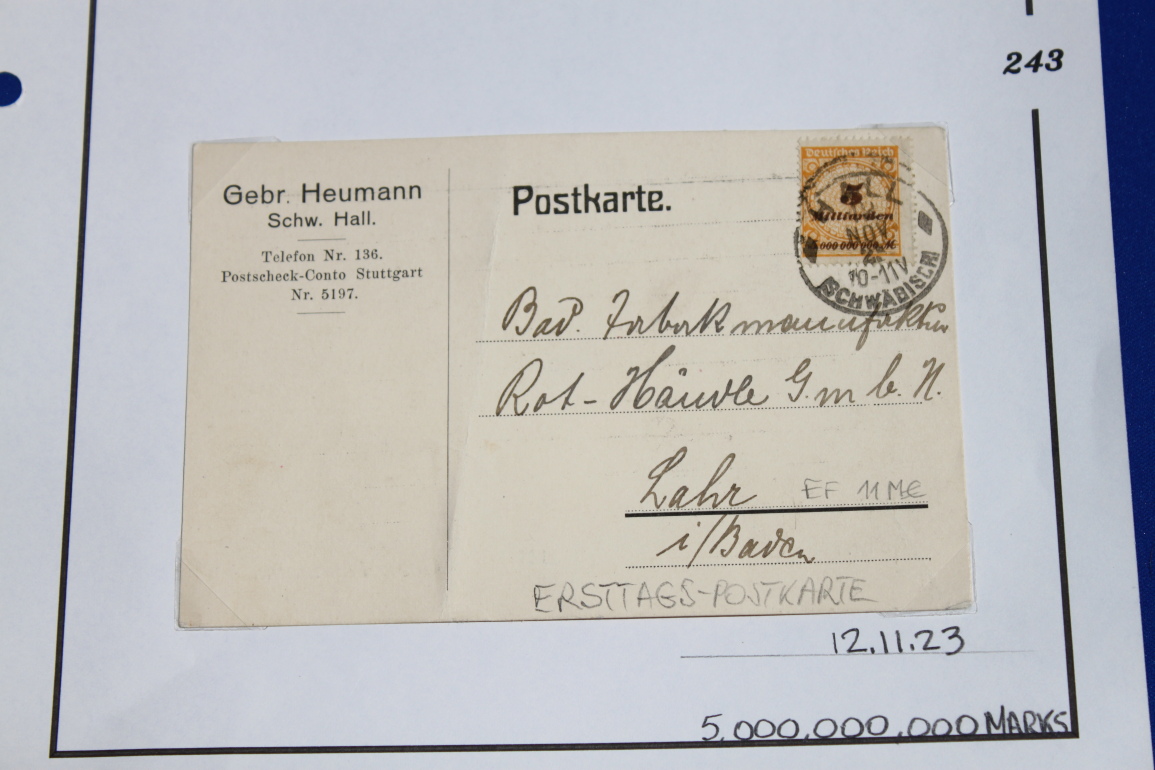 243
Gebr. Heumann
Schw. Hall.
Telefon Nr. 136.
Postscheck-Conto Stuttgart
Nr. 5197.
Postkarte.
Deutsches Reich
5
Milliarden
5 000 000 000 M
HALL
NOV
10-11V
SCHWÄBISCH
Bad. Tabakmanufaktur
Rot-Händle G.m.b.H.
Lahr
EF 11 M€
i/Baden
ERSTTAGS-POSTKARTE
12.11.23
5,000,000,000 MARKS